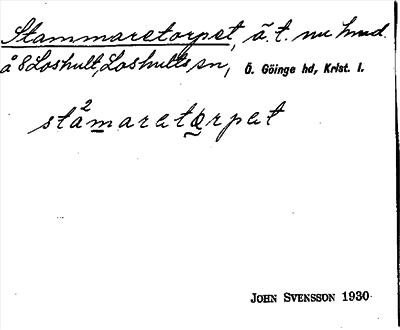 Stammaretorpet, ä. t. nu hmd.
å 8 Loshult, Loshults sn, Ö. Göinge hd, Krist. l.
sta²maretorpet
JOHN SVENSSON 1930